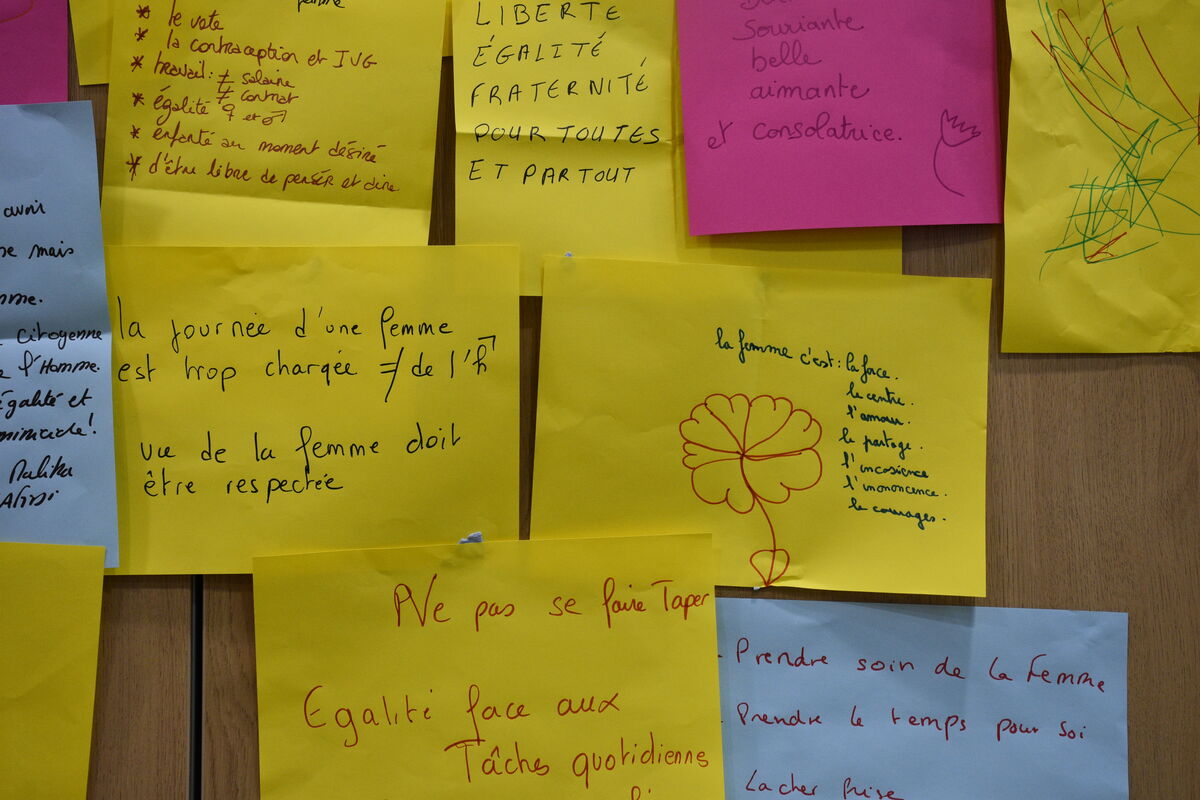 femme
* le vote
* la contraception et IVG
* travail: ≠ salaire
≠ contrat
* égalité ♀ et ♂
* enfanté au moment désiré
* d'être libre de penser et dire
LIBERTE
ÉGALITÉ
FRATERNITÉ
POUR TOUTES
ET PARTOUT
souriante
belle
aimante
et consolatrice.
avoir
mais
Citoyenne
l'Homme.
égalité et
Malika
la journée d'une femme
est trop chargée ≠ de l'h
vie de la femme doit
être respectée
la femme c'est : la force.
le centre.
l'amour.
le partage.
l'incosience
l'inononcence.
le courages.
Ne pas se faire Taper
Egalité face aux
Tâches quotidienne
- Prendre soin de la Femme
- Prendre le temps pour soi
Lacher prise